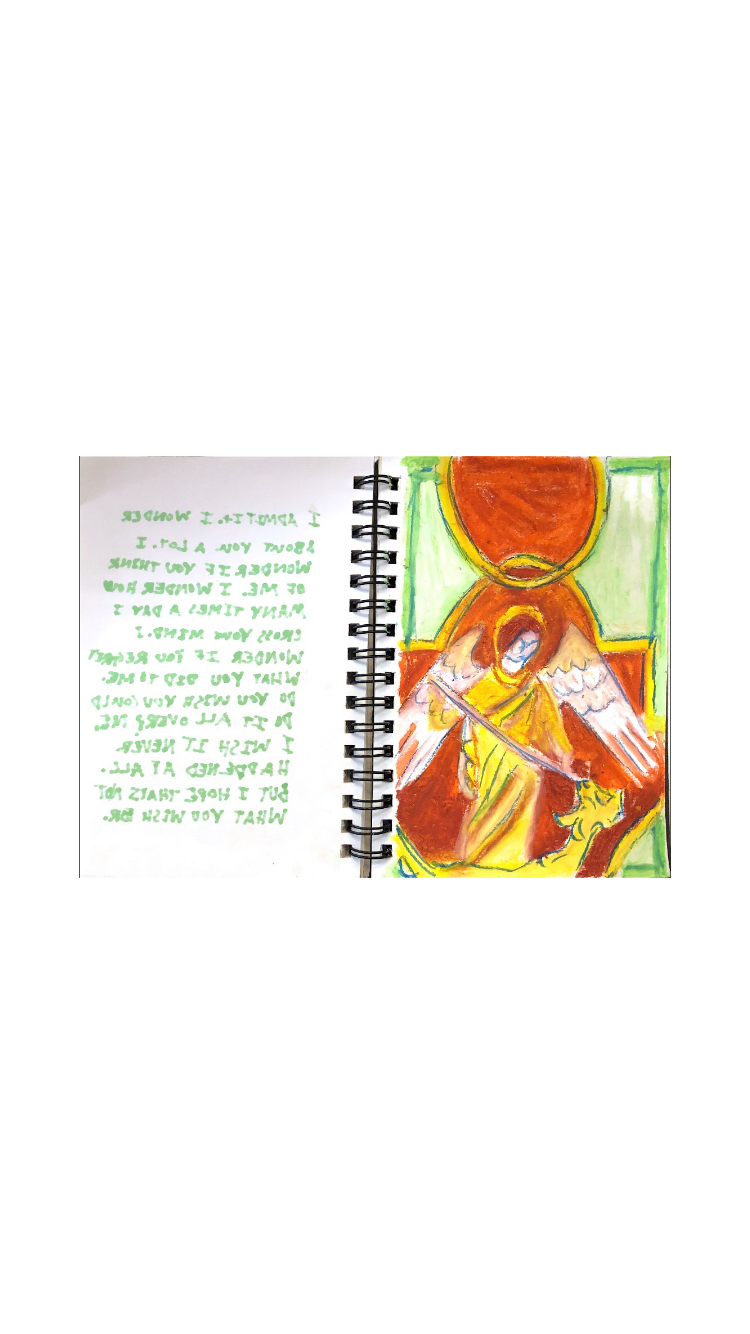 I ADMIT IT. I WONDER
ABOUT YOU A LOT. I
WONDER IF YOU THINK
OF ME. I WONDER HOW
MANY TIMES A DAY I
CROSS YOUR MIND. I
WONDER IF YOU REGRET
WHAT YOU DID TO ME.
DO YOU WISH YOU COULD
DO IT ALL OVER? ME,
I WISH IT NEVER
HAPPENED AT ALL.
BUT I HOPE THATS NOT
WHAT YOU WISH FOR.